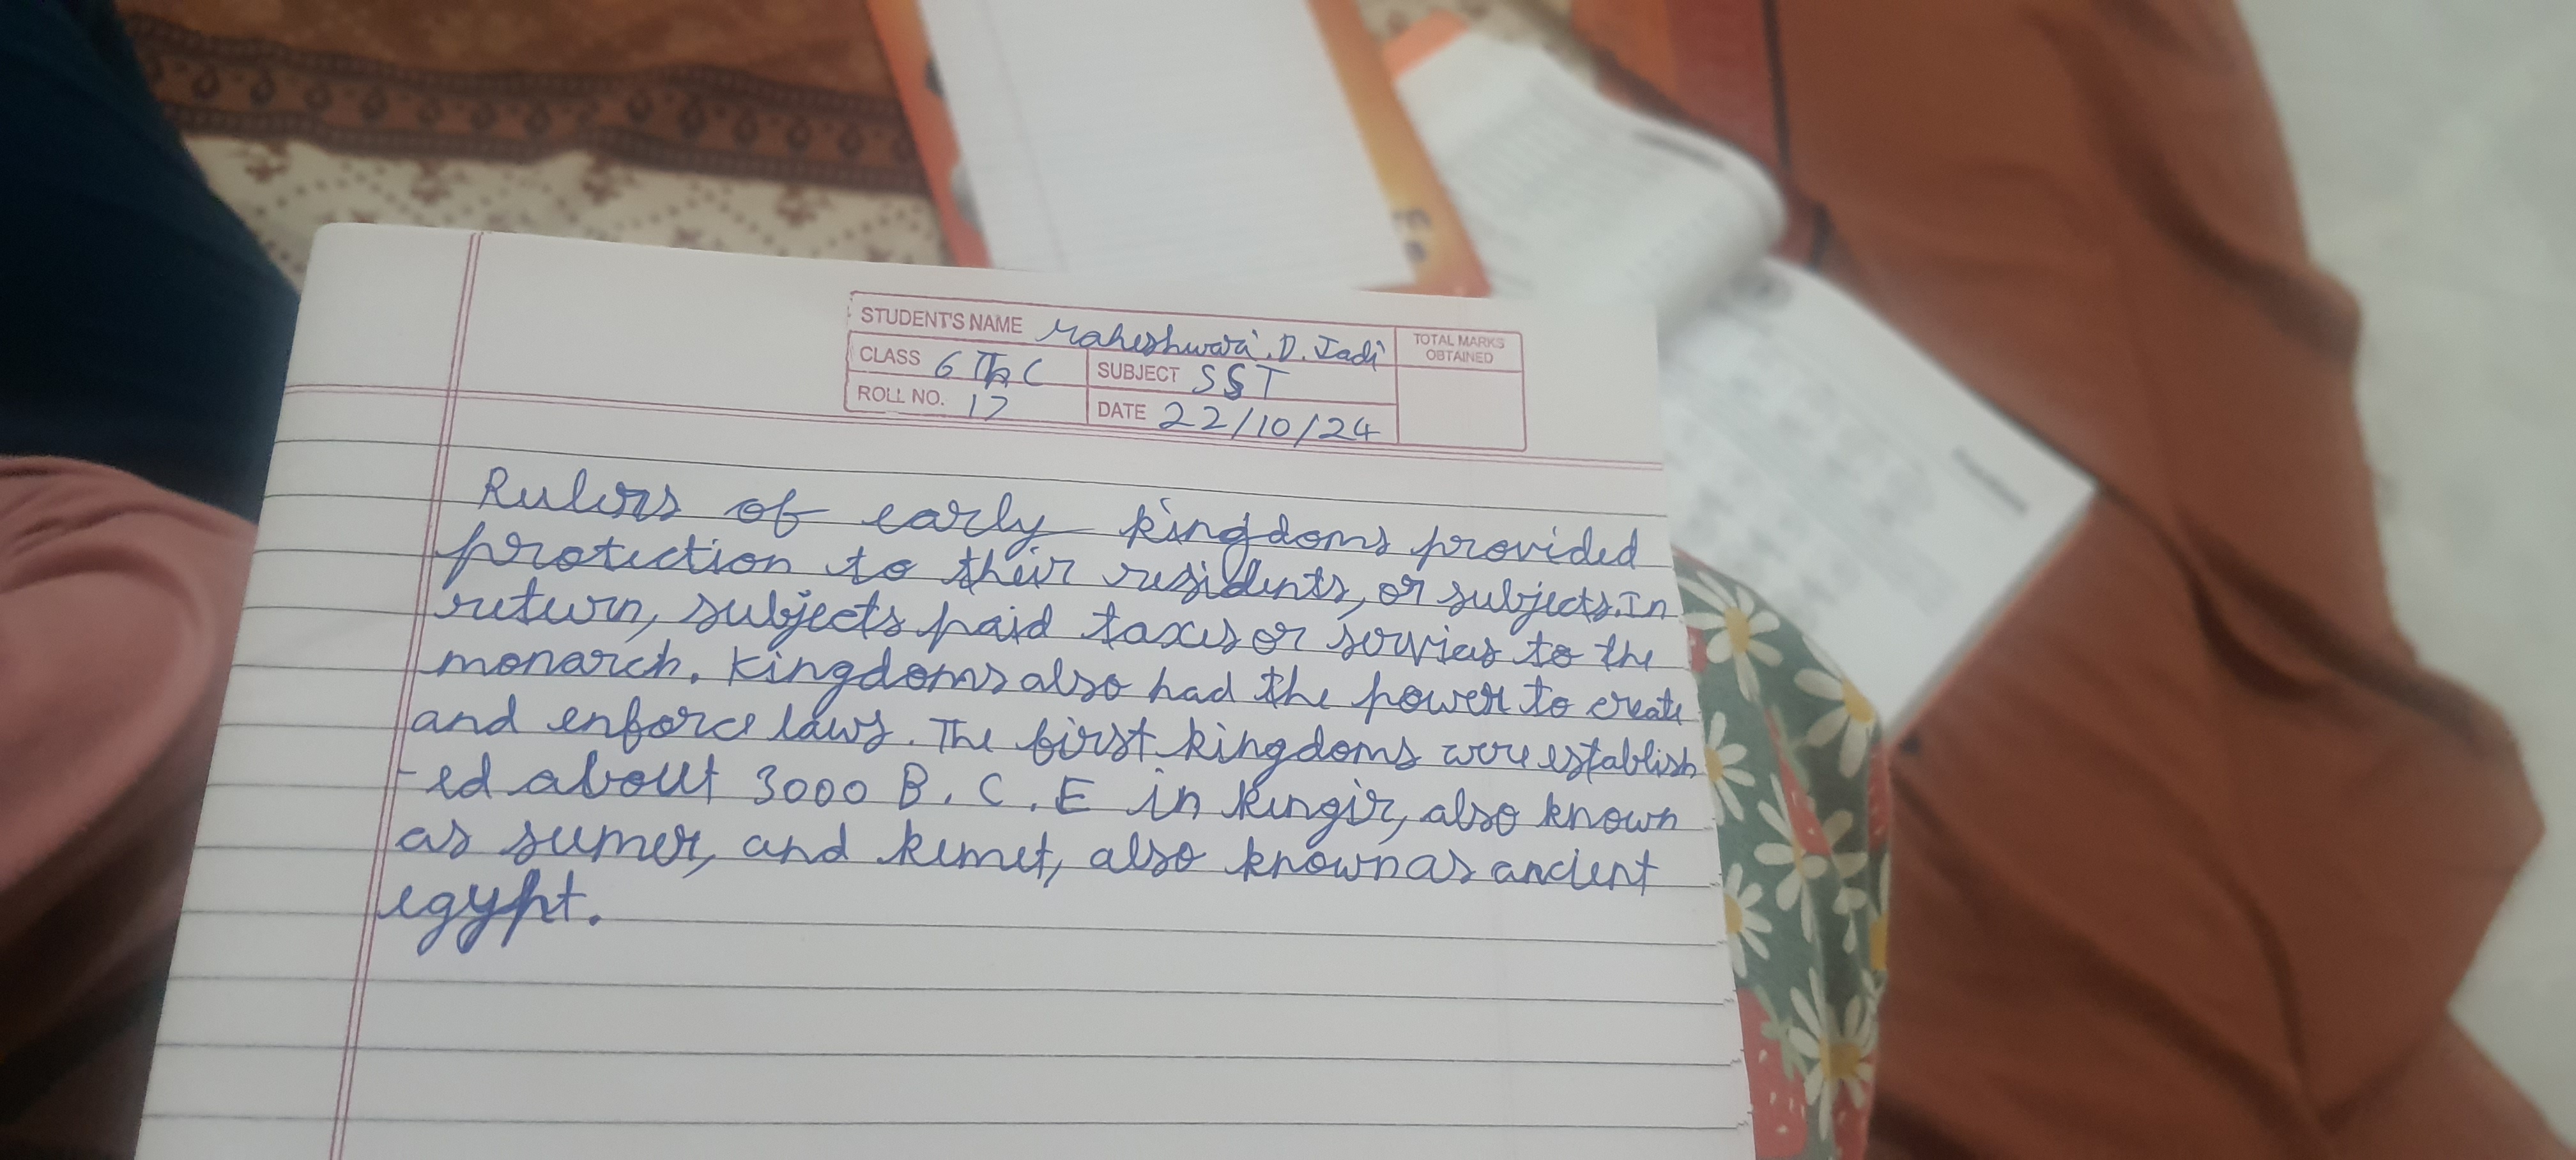 STUDENT'S NAME Maheshwari.D.Jadi
TOTAL MARKS OBTAINED
CLASS 6 Th C SUBJECT SST
ROLL NO. 17 DATE 22/10/24
Rulers of early kingdoms provided
protection to their residents, or subjects. In
return, subjects paid taxes or services to the
monarch. Kingdoms also had the power to create
and enforce laws. The first kingdoms were establish
-ed about 3000 B.C.E in kengir, also known
as sumer, and kemet, also known as ancient
egypt.